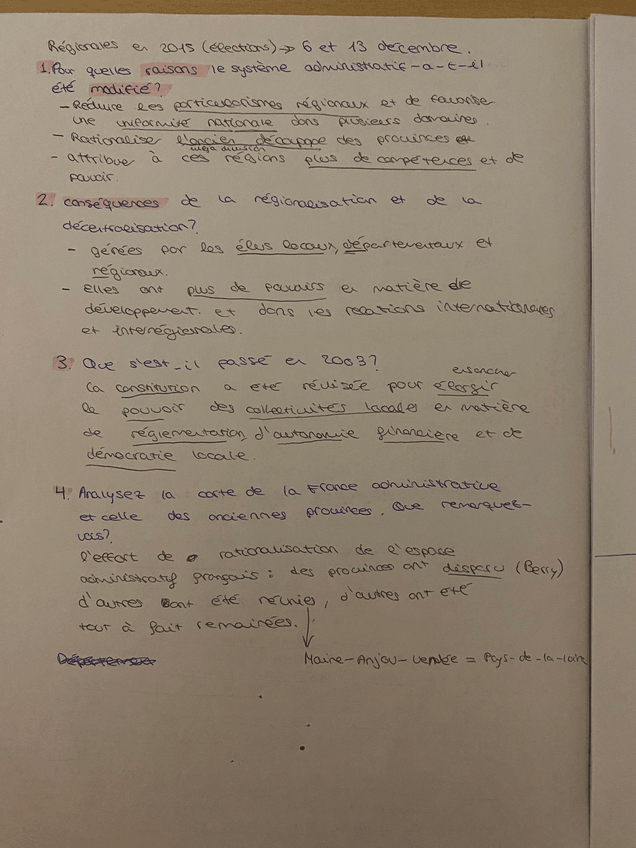 Régionales en 2015 (élections) → 6 et 13 décembre.
1. Pour quelles raisons le système administratif-a-t-il
été modifié?
- Réduire les particularismes régionaux et de favorise
une uniformité nationale dans plusieurs domaines.
- Rationalise l'ancien découpage des provinces
vieja división
- attribue à ces régions plus de compétences et de
pouvoir.
2. conséquences de la régionalisation et de la
décentralisation?
- gérées par les élus locaux, départementaux et
régionaux.
- Elles ont plus de pouvoirs en matière de
développement et dans les relations internationales
et interrégionales.
3. Que s'est-il passé en 2003?
ensanchar
La constitution a été révisée pour élargir
le pouvoir des collectivités locales en matière
de réglementation, d'autonomie financière et de
démocratie locale.
4. Analysez la carte de la France administrative
et celle des anciennes provinces. Que remarquez-
vous?
l'effort de rationalisation de l'espace
administratif français: des provinces ont disparu (Berry)
d'autres ont été réunies, d'autres ont été
tout à fait remaniées.
Maine-Anjou-Vendée = Pays-de-la-Loire